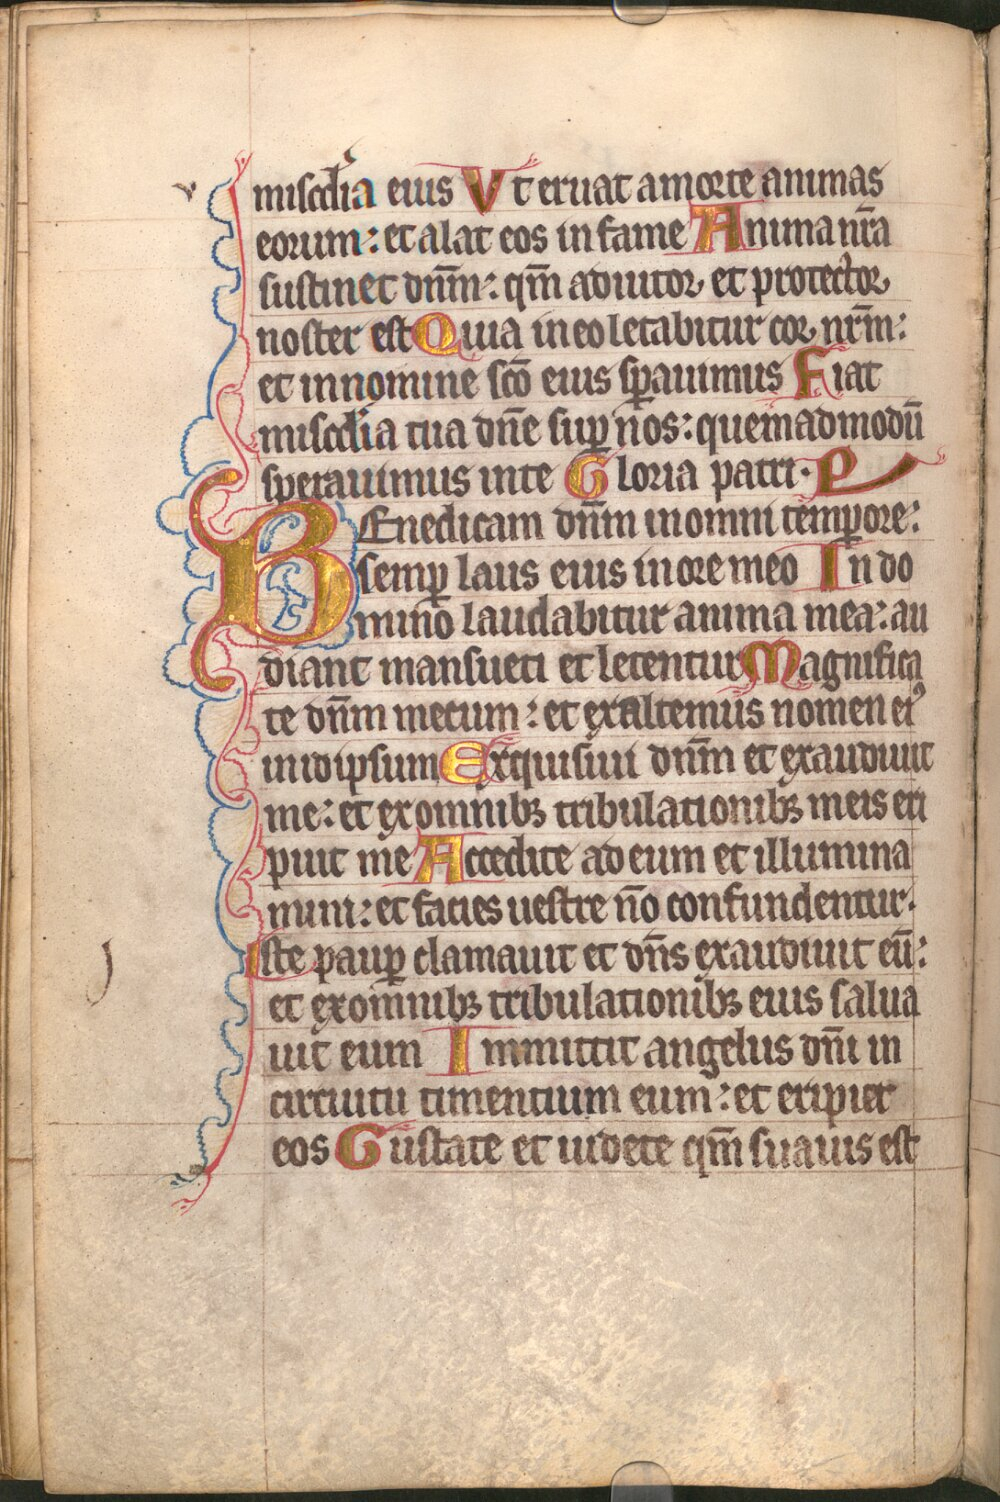 miscd̄ia eius Vt eruat amorte animas
eorum: et alat eos in fame Anima nr̄a
sustinet dn̄m: qm̄ adiutor et protector
noster est Quia in eo letabitur cor nr̄m:
et in nomine scō eius sꝑauimus Fiat
miscd̄ia tua dn̄e suꝑ nos: quemadmodū
sperauimus in te Gloria patri· P
BEnedicam dn̄m in omni tempore:
semꝑ laus eius in ore meo In do
mino laudabitur anima mea: au
diant mansueti et letentur Magnifica
te dn̄m mecum: et exaltemus nomen eiꝰ
in idipsum Exquisiui dn̄m et exaudiuit
me: et ex omnibꝫ tribulationibꝫ meis eri
puit me Accedite ad eum et illumina
mini: et facies uestre nō confundentur·
Iste pauꝑ clamauit et dn̄s exaudiuit eū:
et ex omnibꝫ tribulationibꝫ eius salua
uit eum Immittit angelus dn̄i in
circuitu timentium eum: et eripiet
eos Gustate et uidete qm̄ suauis est